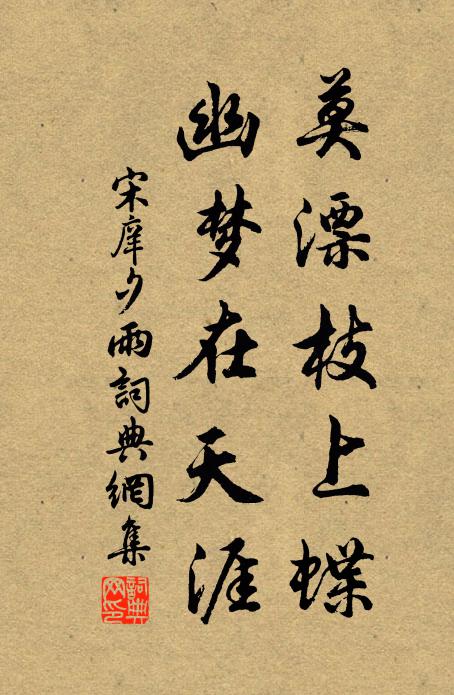 莫漂枝上蝶
幽梦在天涯
宋庠夕雨詞典網集
詞典网印